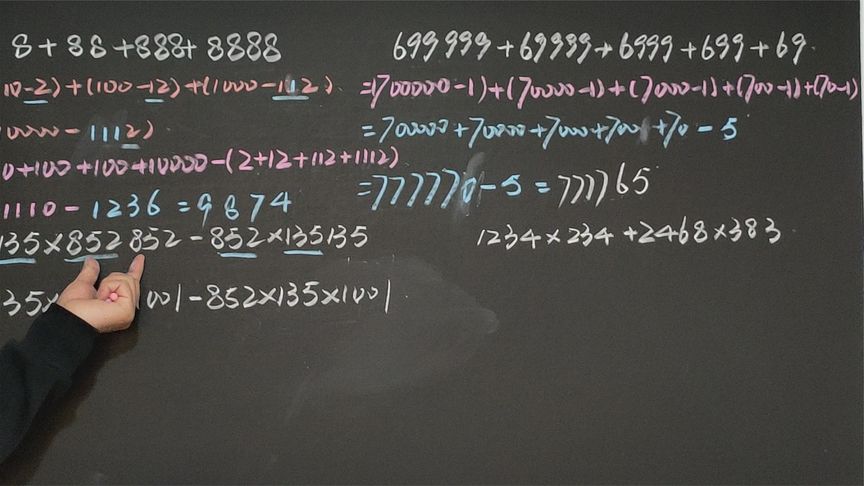 8+88+888+8888
10-2)+(100-12)+(1000-112)
0000-1112)
0+100+100+10000-(2+12+112+1112)
1110-1236=9874
135×852852-852×135135
35× 1001-852×135×1001
699999+69999+6999+699+69
=(700000-1)+(70000-1)+(7000-1)+(700-1)+(70-1)
=70000+70000+7000+700+70-5
=777770-5=777765
1234×234+2468×383